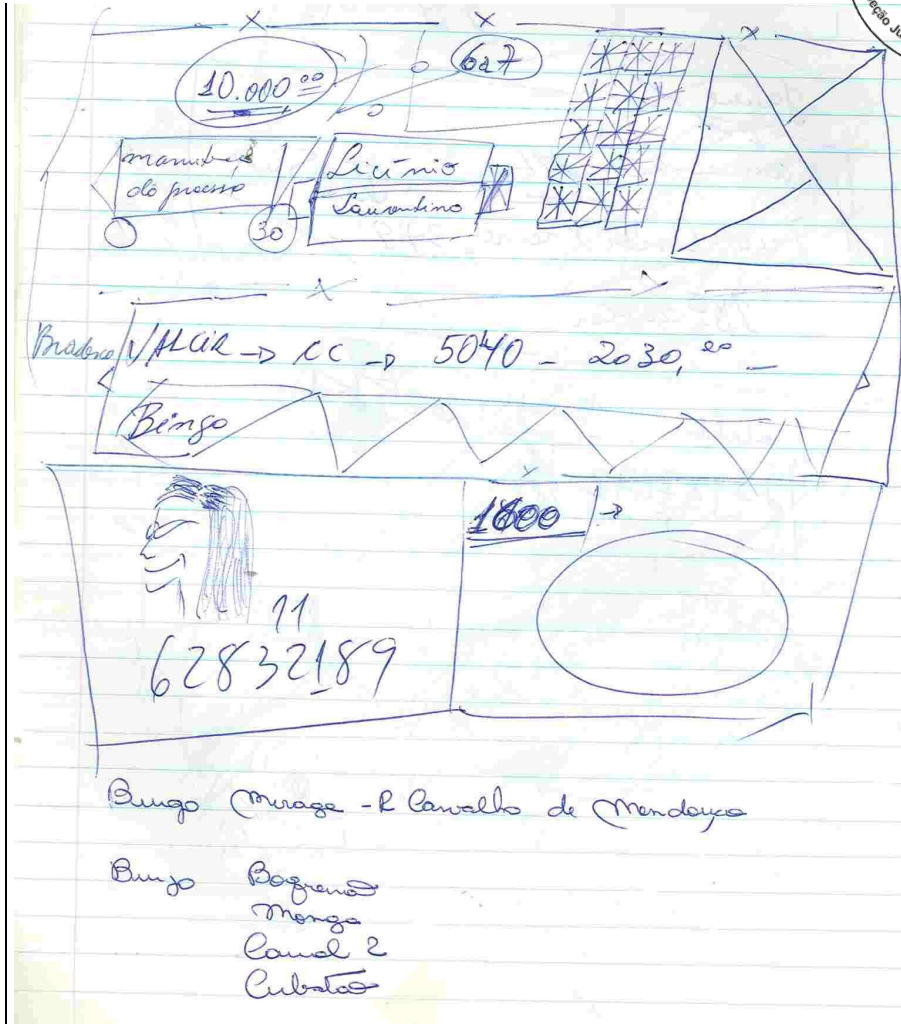 eção Ju
10.000 00
6a7
do processo
Licínio
Laurentino
30
Bradesco
VALCIR → CC → 5040 - 2030,00 -
Bingo
1600 →
11
62832189
Bingo Mirage - R Carvalho de Mendonça
Bingo Boqueirão
Canal 2
Cubatão